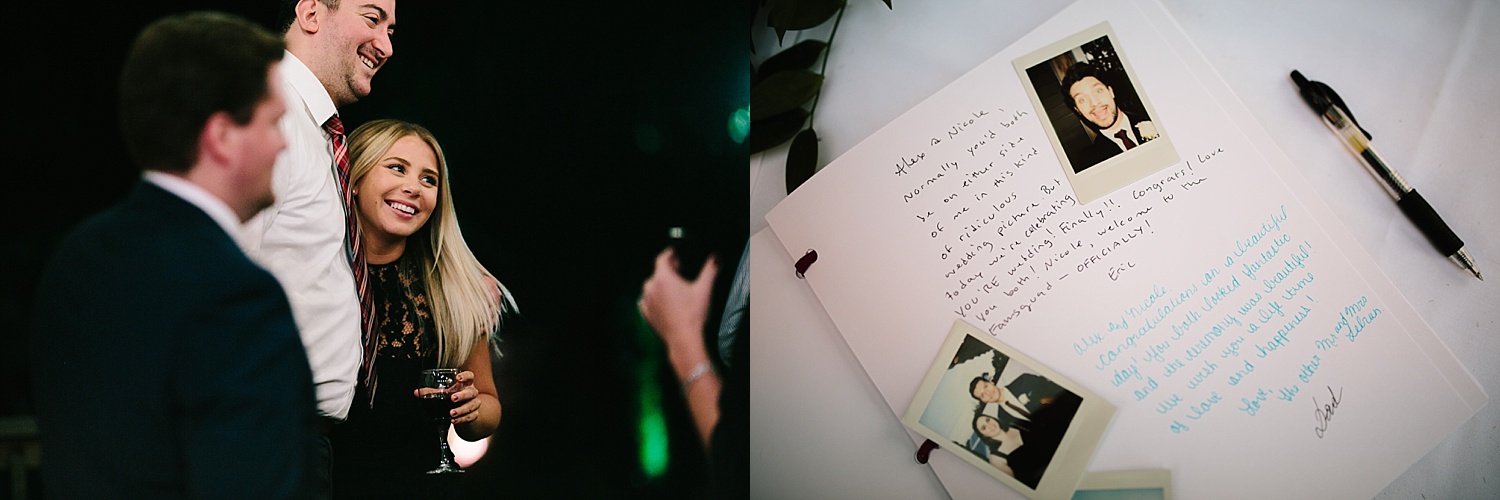 Alex & Nicole,
Normally you'd both
be on either side
of me in this kind
of ridiculous
wedding picture. But
today we're celebrating
YOU'RE wedding! Finally!! Congrats! Love
you both! Nicole, welcome to the
Famsquad — OFFICIALLY!
Eric
Alex and Nicole
Congratulations on a beautiful
day you both looked fantastic
and the ceremony was beautiful!
We wish you a life time
of love and happiness!
Love,
The other Mr and Mrs
Dad